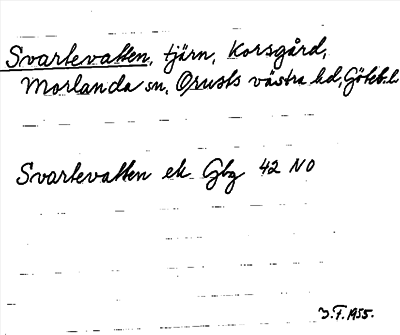 Svartevatten, tjärn, Korsgård,
Morlanda sn, Orusts västra hd, Göteb. l.
Svartevatten ek Gbg 42 NO
J.F. 1955.